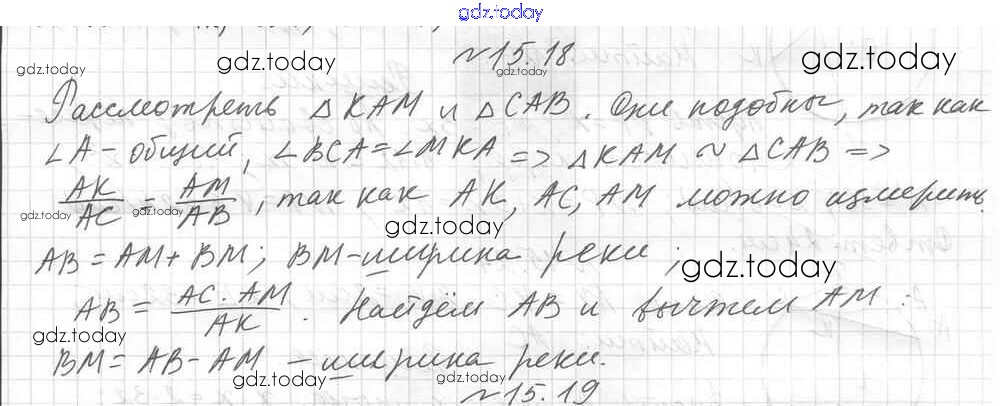 gdz.today
№15.18
gdz.today gdz.today gdz.today gdz.today
Рассмотреть △KAM и △CAB. Они подобны, так как
∠A - общий, ∠BCA = ∠MKA => △KAM ~ △CAB =>
AK/AC = AM/AB, так как AK, AC, AM можно измерить.
gdz.today gdz.today gdz.today
AB = AM + BM; BM - ширина реки;
gdz.today
AB = AC · AM / AK. Найдём AB и вычтем AM:
gdz.today
BM = AB - AM - ширина реки.
gdz.today gdz.today
№15.19